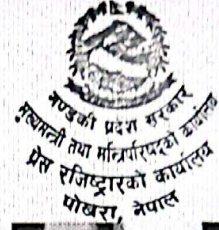 गण्डकी प्रदेश सरकार
मुख्यमन्त्री तथा मन्त्रिपरिषद्को कार्यालय
प्रेस रजिष्ट्रारको कार्यालय
पोखरा, नेपाल